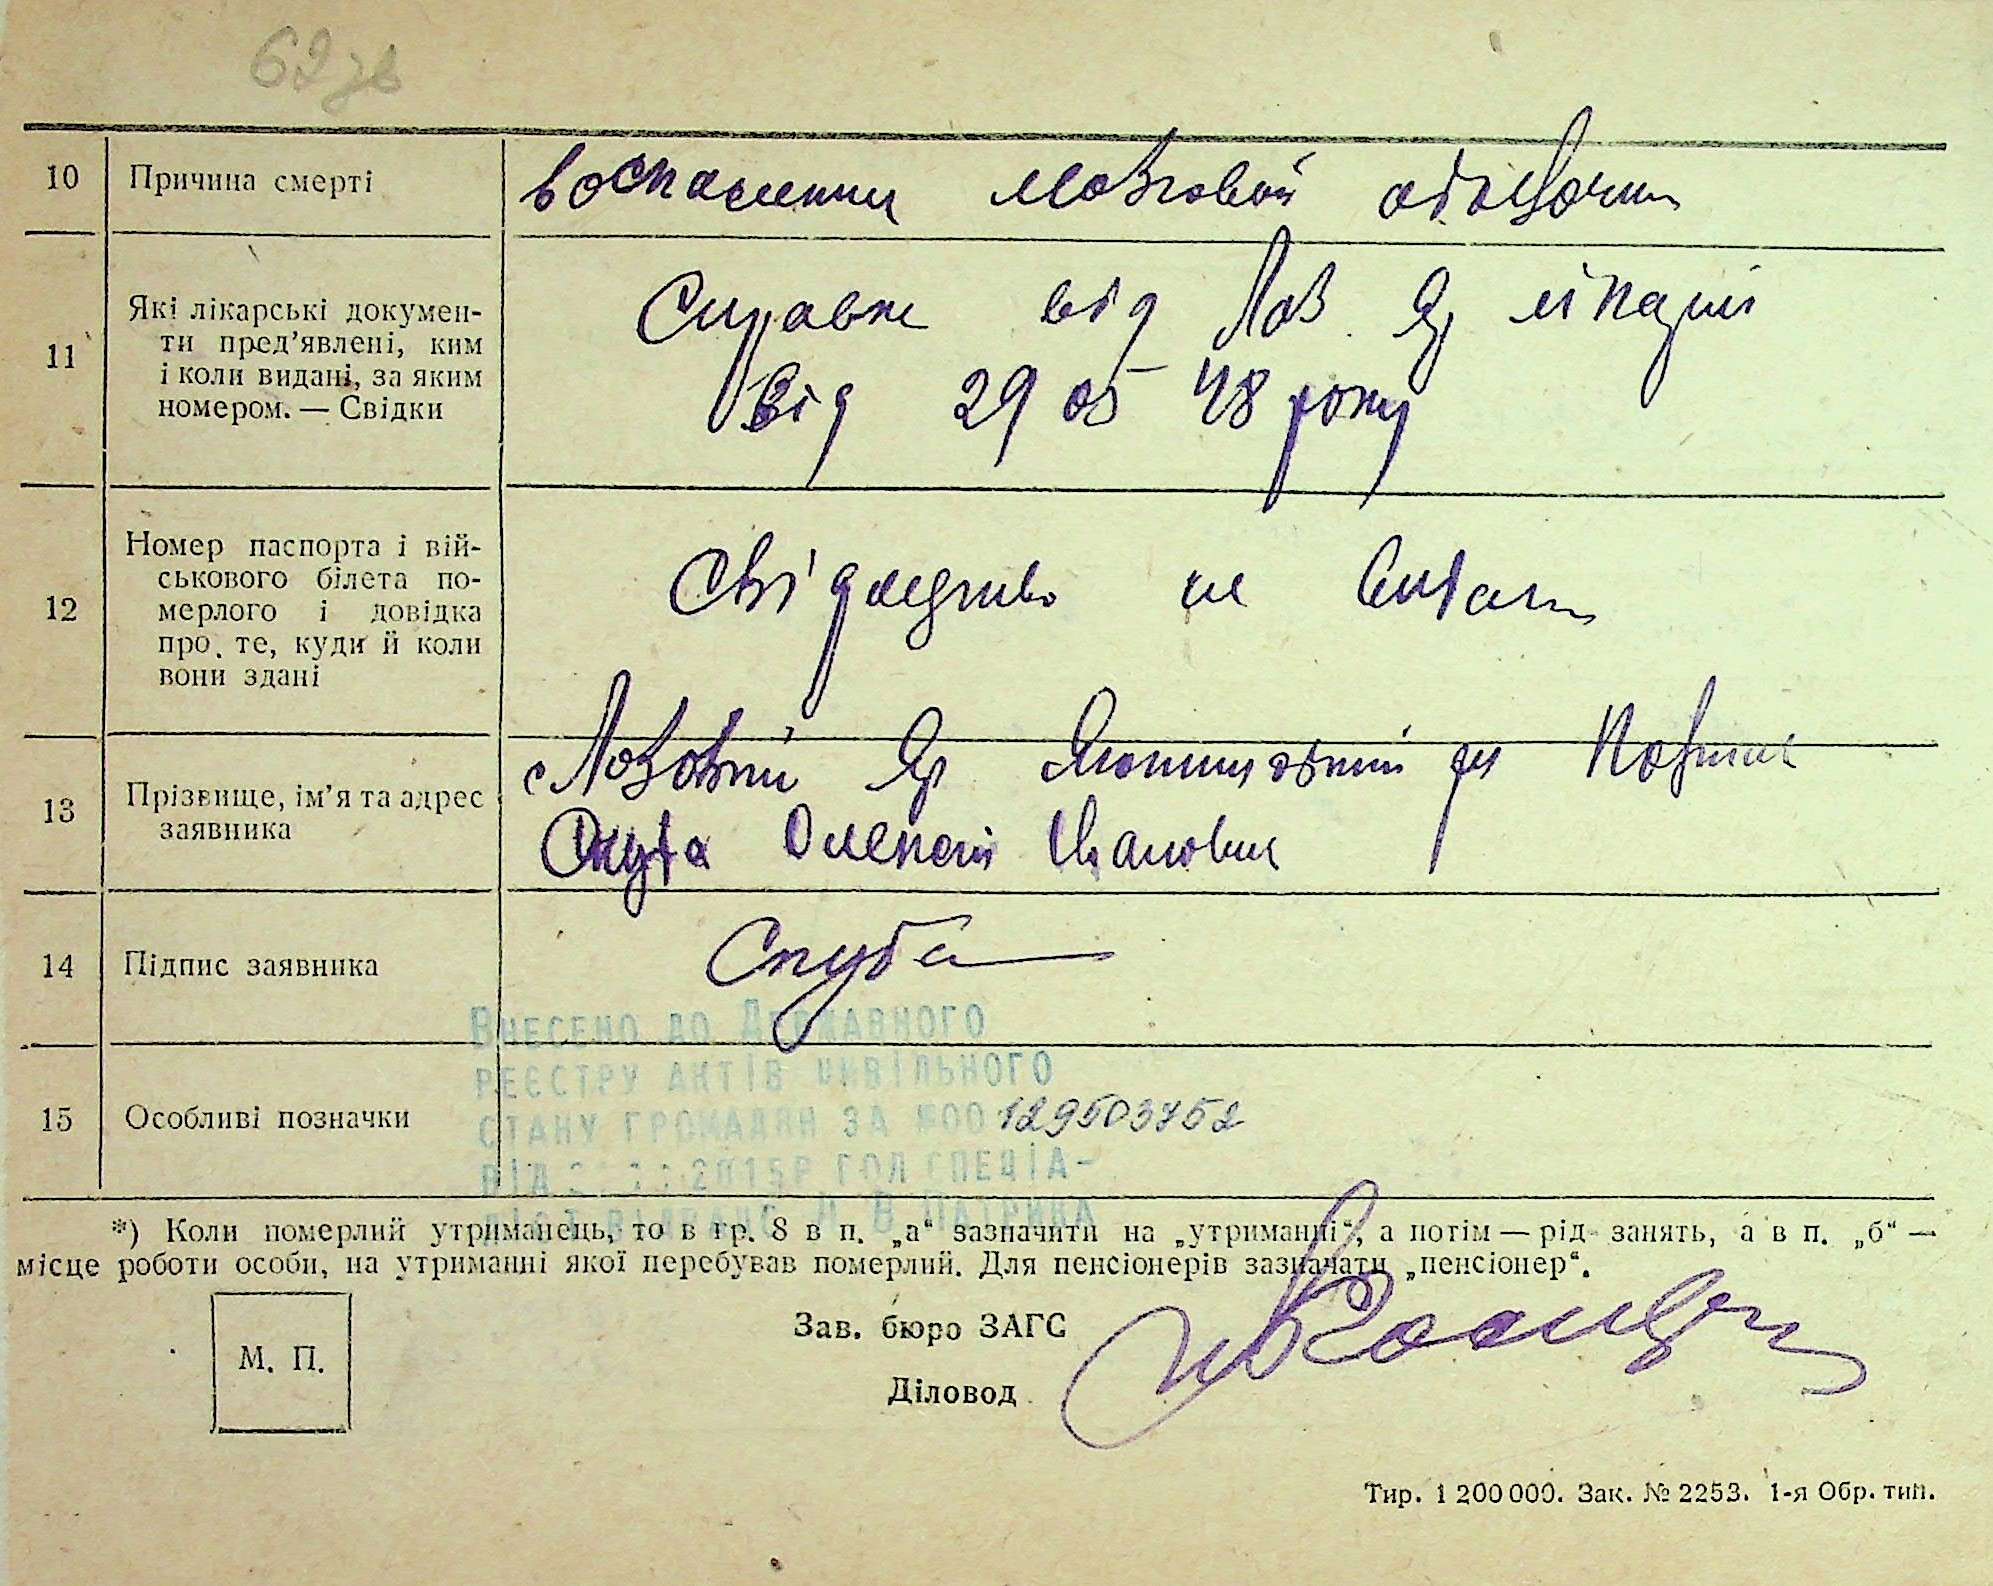 62 зв
10 Причина смерті воспаление мозговой оболочки
11 Які лікарські докумен-
ти пред’явлені, ким
і коли видані, за яким
номером. — Свідки
від Лоз Яр
від 29 05 48 року
12 Номер паспорта і вій-
ськового білета по-
мерлого і довідка
про те, куди й коли
вони здані
не
13 Прізвище, ім’я та адрес
заявника
с Лозовий Яр
Скуба Олексій Іванович
14 Підпис заявника Скуба
Внесено до Державного
реєстру актів цивільного
15 Особливі позначки
стану громадян за №00129503752
від 2015р гол спеціа-
*) Коли померлий утриманець, то в гр. 8 в п. „а“ зазначити на „утриманні“, а потім — рід занять, а в п. „б“ —
місце роботи особи, на утриманні якої перебував померлий. Для пенсіонерів зазначати „пенсіонер“.
Зав. бюро ЗАГС
М. П.
Діловод
Тир. 1 200 000. Зак. № 2253. 1-я Обр. тип.